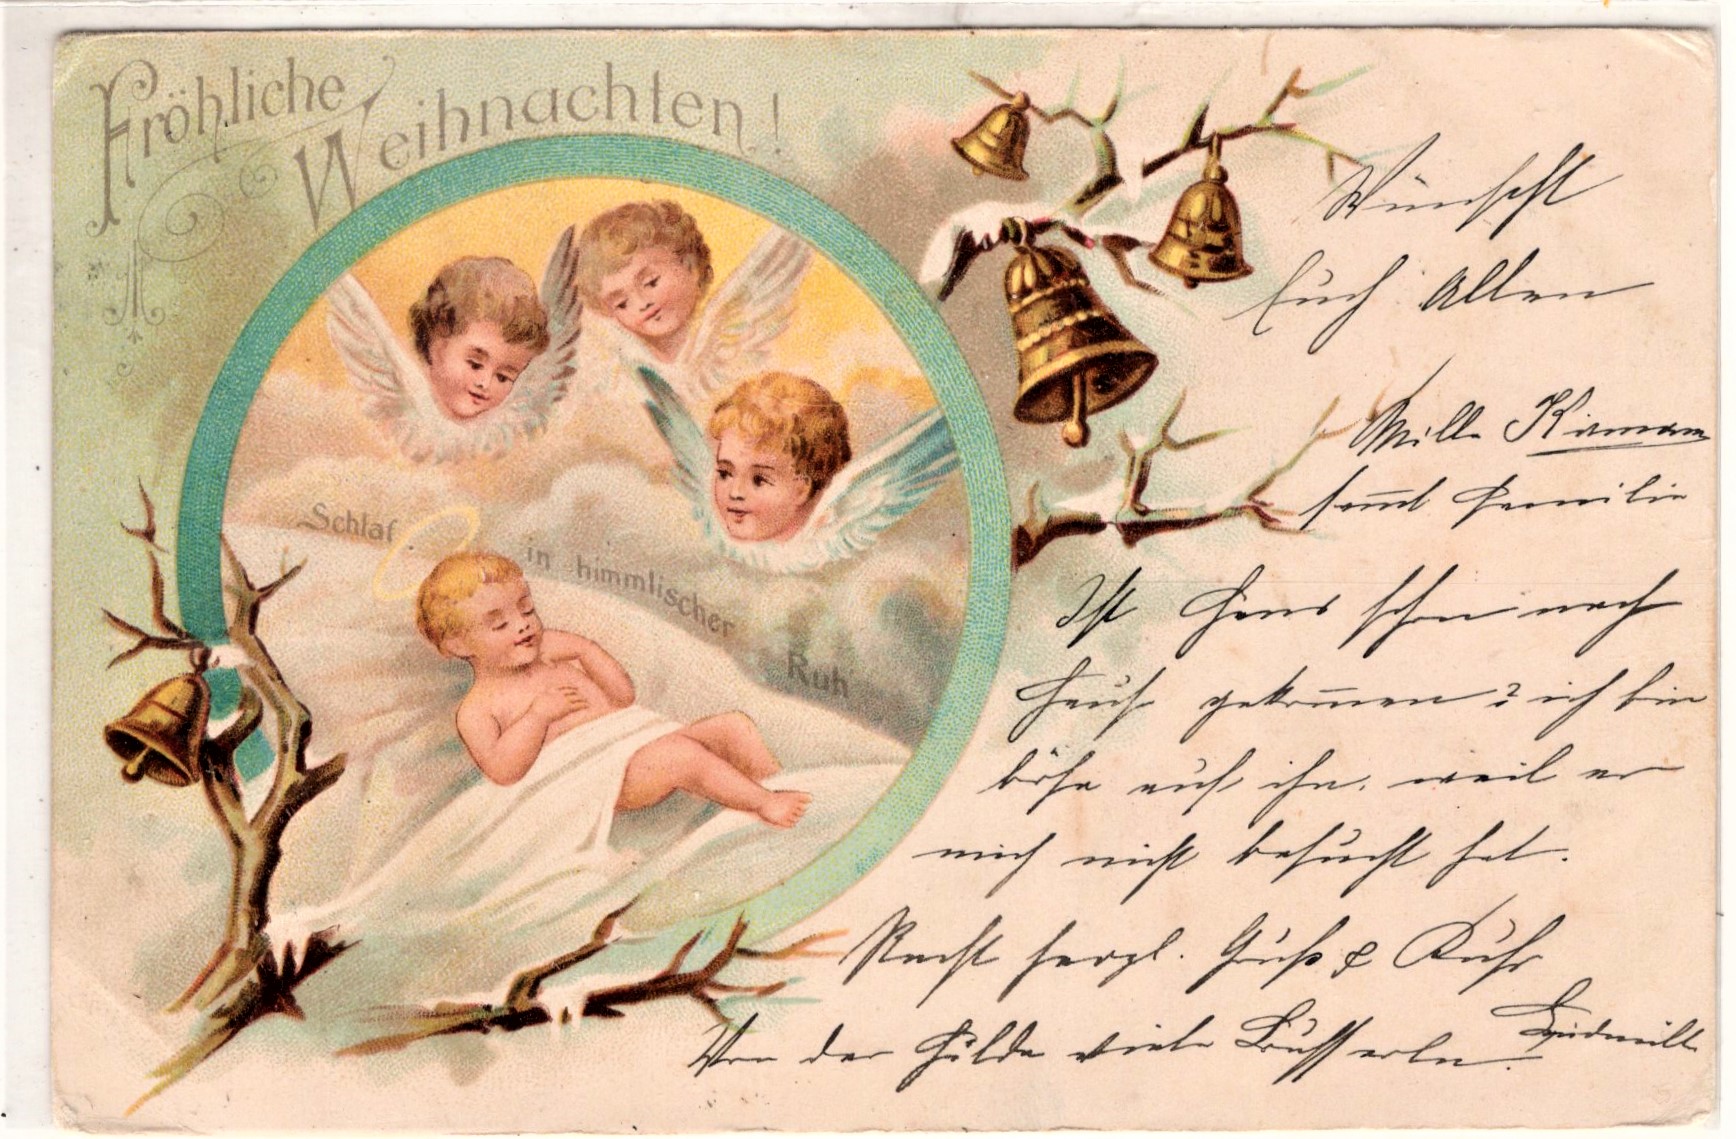 Fröhliche
Weihnachten!
Schlaf in himmlischer Ruh
Wünscht
Euch Allen
Milli
samt Familie
Ist Hans schon nach
Haus gekommen? ich bin
böse auf ihn, weil er
mich nicht besucht hat.
Recht herzl. Gruß & Kuß
Von der Hilda viele Bussserln.